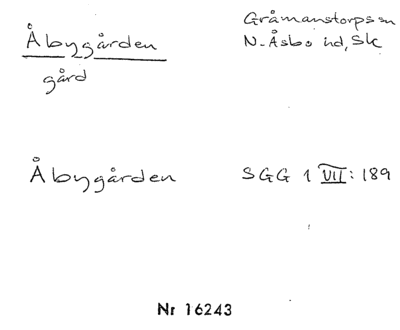 Åbygården
gård
Gråmanstorps sn
N. Åsbo hd, Sk
Åbygården
SGG 1 VII: 189
Nr 16243